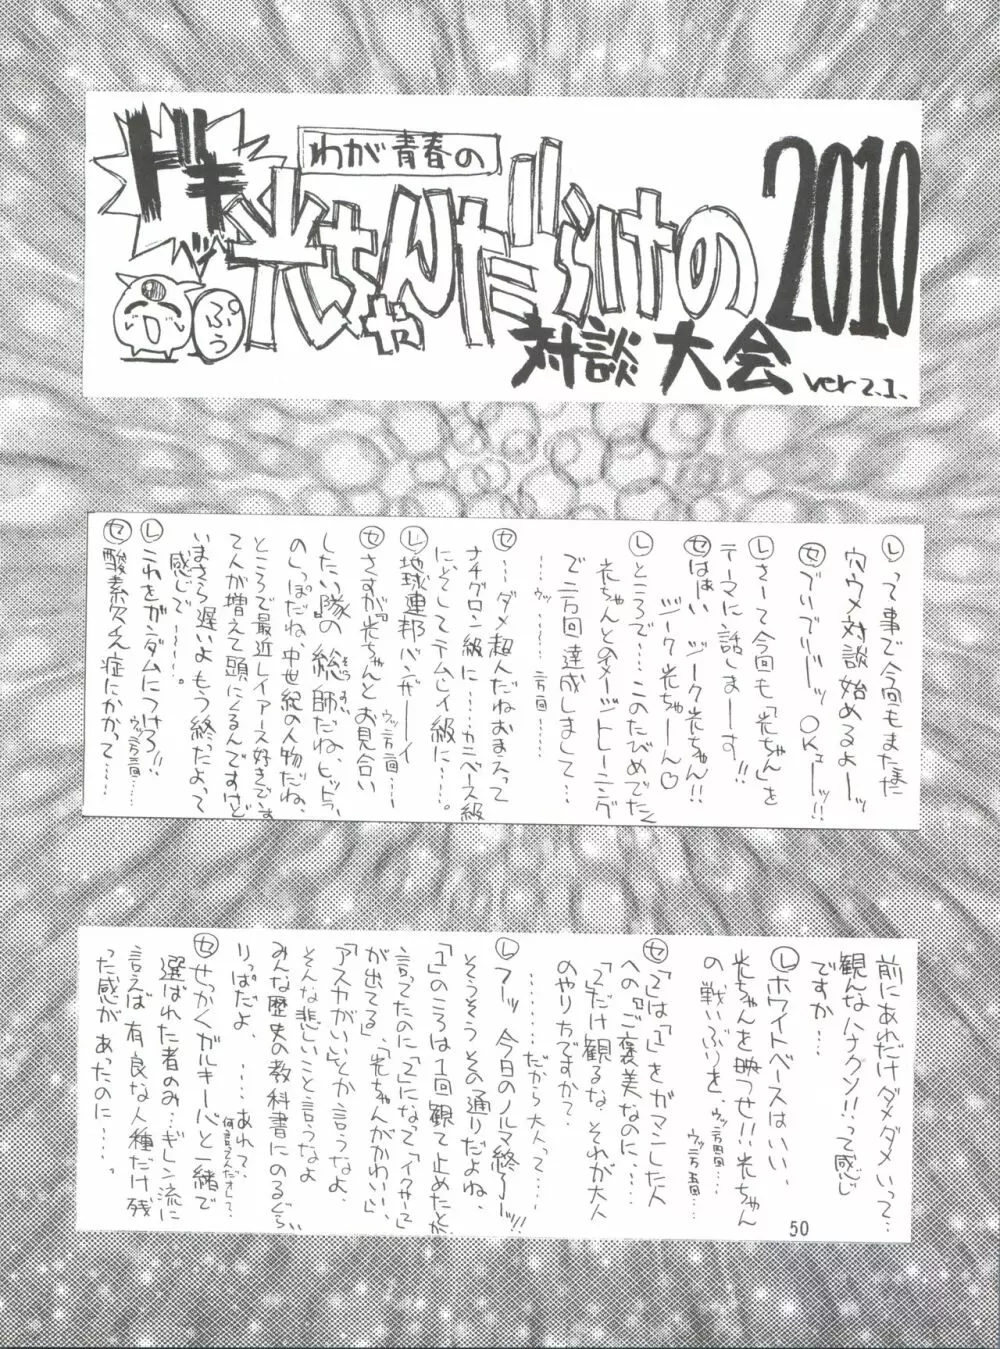 わが青春の
ドキッ
光ちゃんだらけの
2010
ぷぅ
対談大会 ver 2.1.
㋹って事で今回もまたまた
穴ウメ対談始めるよーッ
㋝でぃでぃでぃーッッOKェーッ!!
㋹さーて今回も「光ちゃん」を
テーマに話しまーーす!!
㋝はぁい ジーク光ちゃん!!
ジーク光ちゃーん♡
㋹ところで……このたびめでたく
光ちゃんとのイメージトレーニング
で二万回達成しまして
……ウッ……二万回……
㋝……ダメ超人だねおまえって
ナチグロン級に……カニベース級
にいそしてテムレイ級に……。
㋹地球連邦バンザーーイ
ウッ二万一回……
㋝さすが『光ちゃんとお見合い
したい隊』の総帥だね、ヒットラー
のしっぽだね、中世紀の人物だね、
ところで最近レイアース好きです
て人が増えて頭にくるんですけど
いまさら遅いよもう終ったよって
感じで……。
ウッ二万二回……
㋹これをガンダムにつけろ!!
㋝酸素欠乏症にかかって……
前にあれだけダメダメいって…
観んなハナクソ!!って感じ
ですか…
㋹ホワイトベースはいい、
光ちゃんを映つせ!!!光ちゃん
の、戦いぶりを、ウッ二万四回……
ウッ二万五回……
㋝「2」は「1」をガマンした人
への『ご褒美なのに……
「2」だけ観るな?それが大人
のやり方ですか?
………だから大人って……
㋹フーッ今日のノルマ終了ーッ!!
そうそうその通りだよね、
「1」のころは1回観て止めたとか
言ってたのに「2」になって「イクサーで
が出てる」、「光ちゃんがかわいい」
「アスカがいい」とか言うなよ、
そんな悲しいこと言うなよ
みんな歴史の教科書にのるぐら
りっぱだよ、……あれっ?
何言ってんだオレって
㋝せっかくガルキーバと一緒で
選ばれた者のみ…ギレン流に
言えば有良な人種だけ残
った感があったのに……、
50